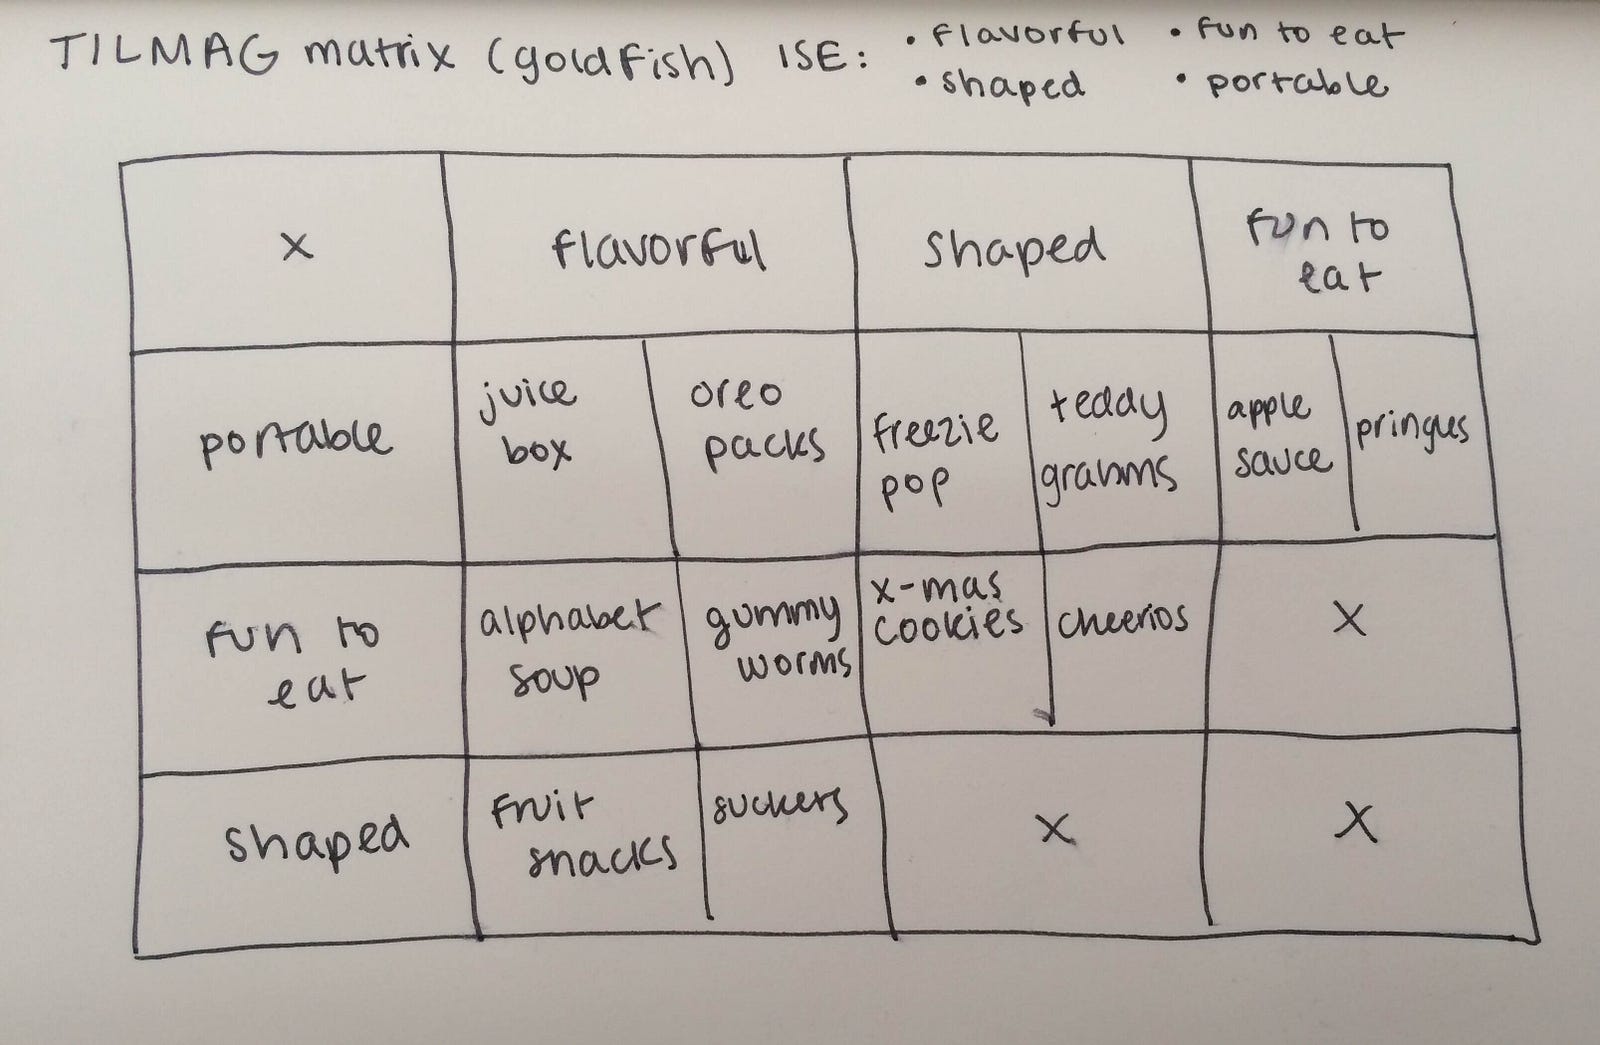 TILMAG matrix (goldfish) ISE: • flavorful • fun to eat
• shaped • portable
x flavorful shaped fun to
eat
portable juice
box oreo
packs freezie
pop teddy
grahms apple
sauce pringles
fun to
eat alphabet
soup gummy
worms x-mas
cookies cheerios x
shaped fruit
snacks suckers x x